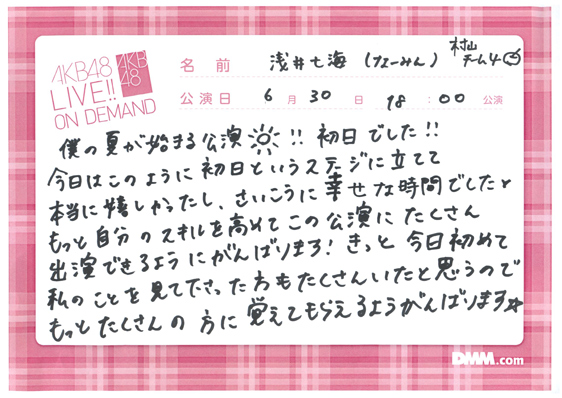 AKB48
LIVE!!
ON DEMAND
AKB
48
名 前 浅井七海 (なーみん)
村山
チーム4
公演日 6 月 30 日 18 : 00 公演
僕の夏が始まる公演 !! 初日でした!!
今日はこのように初日というステージに立てて
本当に嬉しかったし、さいこうに幸せな時間でした♥
もっと自分のスキルを高めてこの公演にたくさん
出演できるようにがんばります! きっと今日初めて
私のことを見て下さった方もたくさんいたと思うので
もっとたくさんの方に覚えてもらえるようがんばります☆
DMM.com